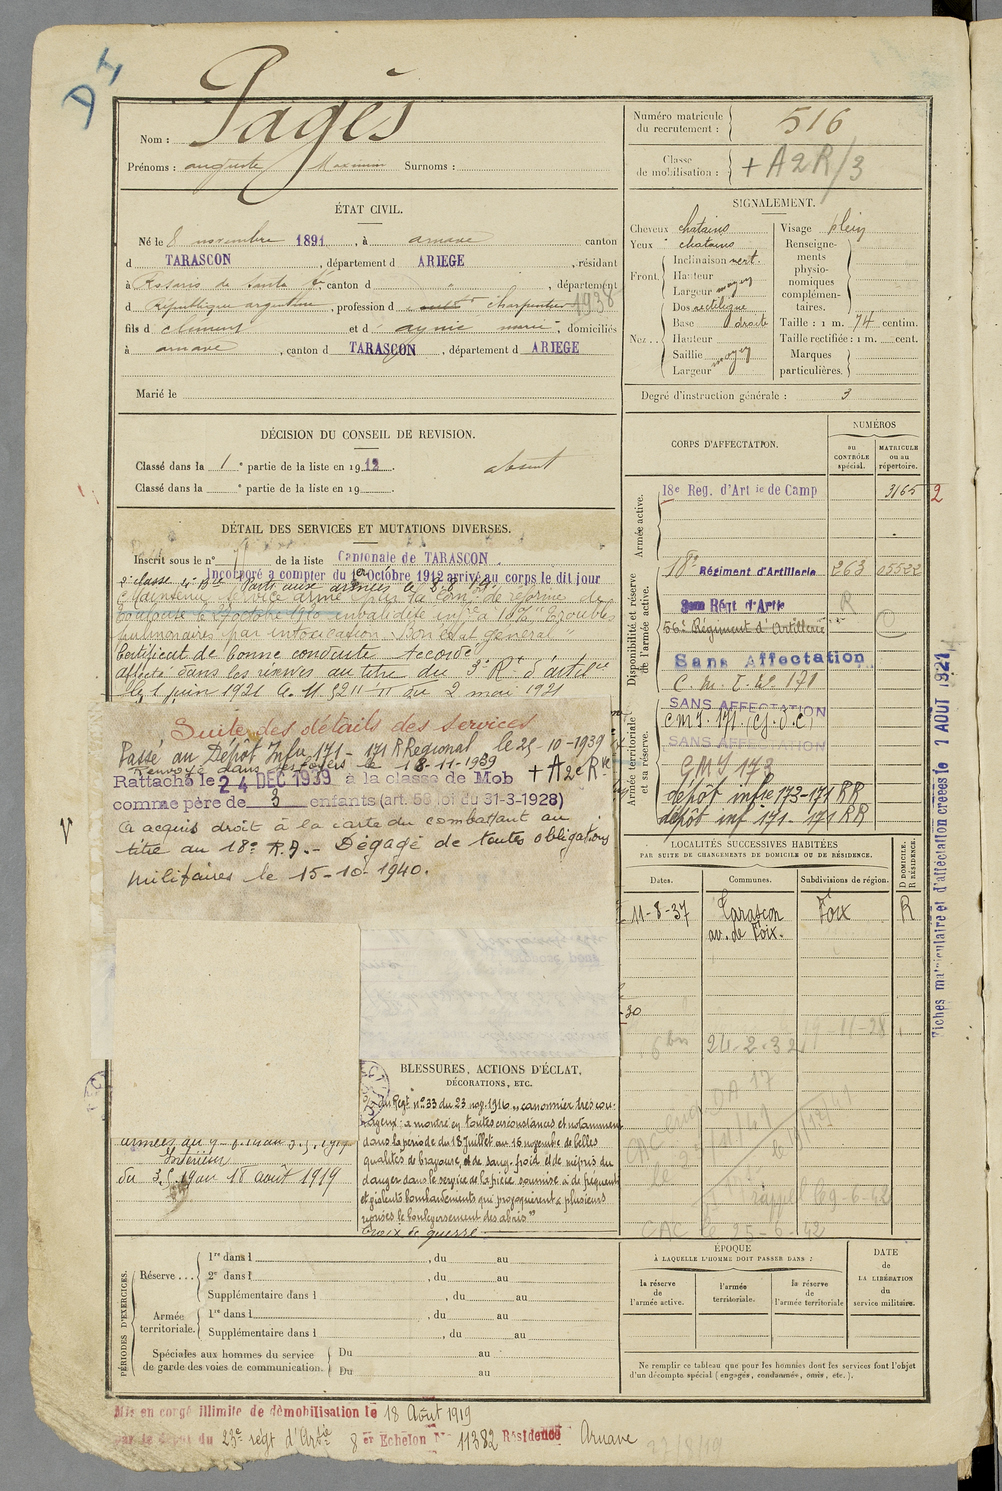 D4
Nom : Pagès
Prénoms : auguste Maximin Surnoms :
Numéro matricule du recrutement : 516
Classe de mobilisation : + A2R/3
ÉTAT CIVIL.
Né le 8 novembre 1891, à arnave canton
d TARASCON, département d ARIEGE, résidant
à Rosario de Santa Fe canton d " , département
d République argentine, profession d charpentier 1938
fils d clément et d' marie, domiciliés
à arnave, canton d TARASCON, département d ARIEGE
Marié le
SIGNALEMENT.
Cheveux chatains
Yeux chatains
Front. Inclinaison vert.
Hauteur
Largeur moyen
Nez.. Dos rectiligne
Base droite
Hauteur
Saillie moyen
Largeur
Visage plein
Renseignements physionomiques complémentaires.
Taille : 1 m. 74 centim.
Taille rectifiée : 1 m. cent.
Marques particulières.
Degré d'instruction générale : 3
DÉCISION DU CONSEIL DE REVISION.
Classé dans la 1e partie de la liste en 1912. absent
Classé dans la e partie de la liste en 19
DÉTAIL DES SERVICES ET MUTATIONS DIVERSES.
Inscrit sous le n° de la liste Cantonale de TARASCON
Incorporé à compter du 1er Octobre 1912 arrivé au corps le dit jour
2e classe Parti aux armées le
Maintenu service armé par la Com. de réforme de
Toulouse le octobre 1920 invalidité infre à 10% "Troubles
pulmonaires par intoxication. Bon état général"
Certificat de bonne conduite Accordé
Affecté dans les réserves au titre du 3e Rt d'artie
le 1 juin 1921 du 2 mai 1921
Suite des détails des services
Passé au Dépôt Infie 171 - 171 R Régional le 25-10-1939
Renvoyé dans ses foyers le 18-11-1939
Rattaché le 24 DEC 1939 à la classe de Mob + A2e Rve
comme père de 3 enfants (art. 58 loi du 31-3-1928)
A acquis droit à la carte du combattant au
titre du 18e R.A. - Dégagé de toutes obligations
militaires le 15-10-1940.
V
CORPS D'AFFECTATION.
NUMÉROS
au CONTRÔLE spécial.
MATRICULE ou au répertoire.
Armée active.
18e Reg. d'Art ie de Camp 3165 2
Disponibilité et réserve de l'armée active.
18e Régiment d'Artillerie 263 05522
3me Régt d'Artie R
56e Régiment d'Artillerie
Sans Affectation
C. M. I. 171
Armée territoriale et sa réserve.
SANS AFFECTATION
CMI. 171. (G.V.C)
SANS AFFECTATION
GMI 173
dépôt infie 173-171 RR
dépôt inf 171 - 171 RR
Fiches matriculaire et d'affectation créées le 1 AOUT 1921
LOCALITÉS SUCCESSIVES HABITÉES
PAR SUITE DE CHANGEMENTS DE DOMICILE OU DE RÉSIDENCE.
Dates. Communes. Subdivisions de région. D DOMICILE. R RÉSIDENCE.
11-8-37 Tarascon Foix R
av. de Foix.
-30
19-11-28
24-2-32
CAC
rappel 69-6-42
CAC le 25-6-42
BLESSURES, ACTIONS D'ÉCLAT,
DÉCORATIONS, ETC.
du Régt n°33 du 23 nov. 1916 "canonnier très cou-
rageux : a montré en toutes circonstances et notamment
dans la période du 18 Juillet au 16 novembre de belles
qualités de bravoure, et de sang-froid et de mépris du
danger dans le service de la pièce soumise à de fréquents
et violents bombardements qui provoquèrent à plusieurs
reprises le bouleversement des abris"
Croix de guerre
armées du
Intérieur
du 3.5.19 au 18 août 1919
PÉRIODES D'EXERCICES.
Réserve ... 1re dans l , du au
2e dans l , du au
Supplémentaire dans l , du au
Armée territoriale. 1re dans l , du au
Supplémentaire dans l , du au
Spéciales aux hommes du service de garde des voies de communication. Du au
Du au
ÉPOQUE
À LAQUELLE L'HOMME DOIT PASSER DANS :
la réserve de l'armée active.
l'armée territoriale.
la réserve de l'armée territoriale
DATE de LA LIBÉRATION du service militaire.
Ne remplir ce tableau que pour les hommes dont les services font l'objet
d'un décompte spécial (engagés, condamnés, omis, etc.).
Mis en congé illimité de démobilisation le 18 Août 1919
par le dépôt du 23e régt d'Artie 8 er Echelon N° 11382 Résidence Arnave 27/8/19